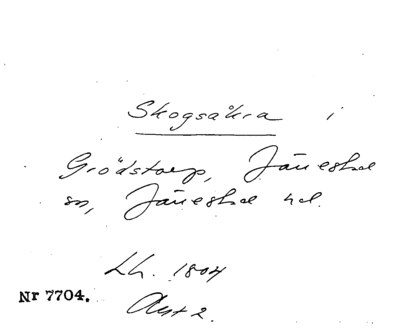 Skogsåkra i
Grödstorp, Järrestad
sn, Järrestad hd.
Lh. 1804
Nr 7704.
Akt 2.